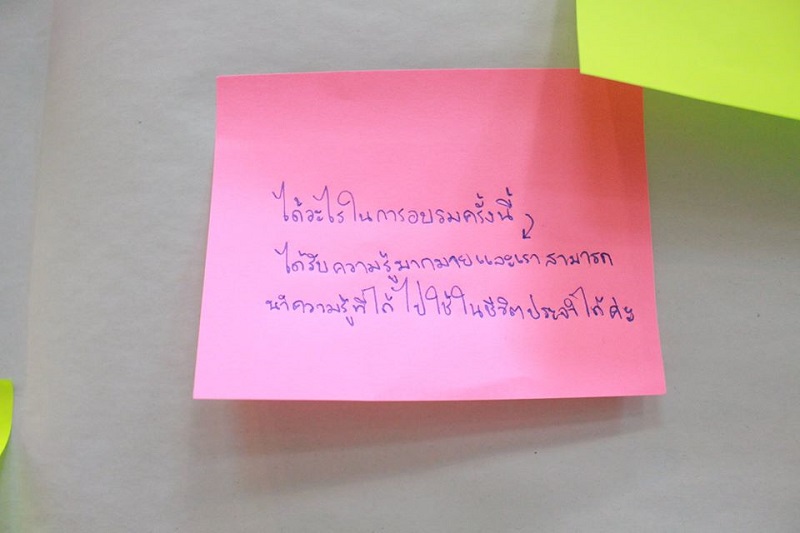 ได้อะไรในการอบรมครั้งนี้
ได้รับความรู้มากมายและเราสามารถ
นำความรู้ที่ได้ไปใช้ในชีวิตประจำได้ค่ะ